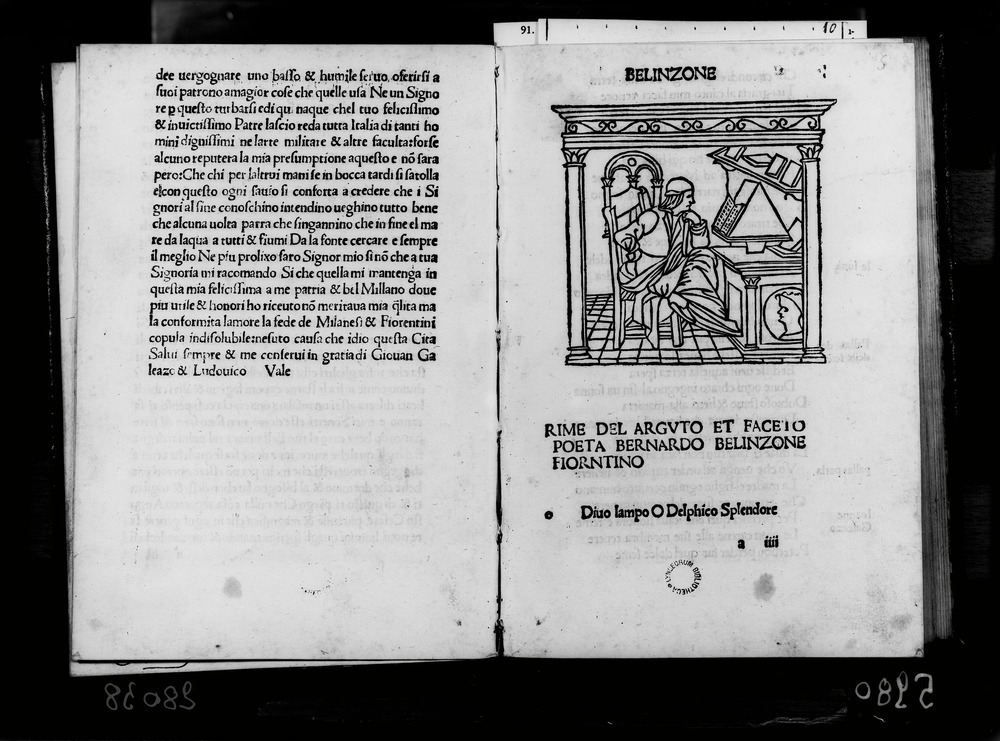 91.
10
dee uergognare uno basso & humile seruo, oferirsi a
suoi patrono amagior cose che quelle usa Ne un Signo
re p questo turbarsi edi qui naque chel tuo felicissimo
& inuictissimo Patre lascio reda tutta Italia di tanti ho
mini dignissimi ne larte militare & altre faculta:forse
alcuno reputera la mia presumptione aquesto e nõ sara
pero:Che chi per laltrui mani se in bocca tardi si satolla
elcon questo ogni sauio si conforta a credere che i Si
gnori al fine conoschino intendino ueghino tutto bene
che alcuna uolta parra che singannino che in fine el ma
re da laqua a tutti & fiumi Da la fonte cercare e sempre
il meglio Ne piu prolixo saro Signor mio si nõ che a tua
Signoria mi racomando Si che quella mi mantenga in
questa mia felicissima a me patria & bel Millano doue
piu utile & honori ho riceuto nõ meritaua mia qlita ma
la conformita lamore la fede de Milanesi & Fiorentini
copula indisolubile:nesuto causa che idio questa Cita
Salui sempre & me conserui in gratia di Giouan Ga
leazo & Ludouico Vale
BELINZONE
RIME DEL ARGVTO ET FACETO
POETA BERNARDO BELINZONE
FIORNTINO
Diuo lampo O Delphico Splendore
a iiii
LYNCEORUM BIBLIOTHECA
28038
5980